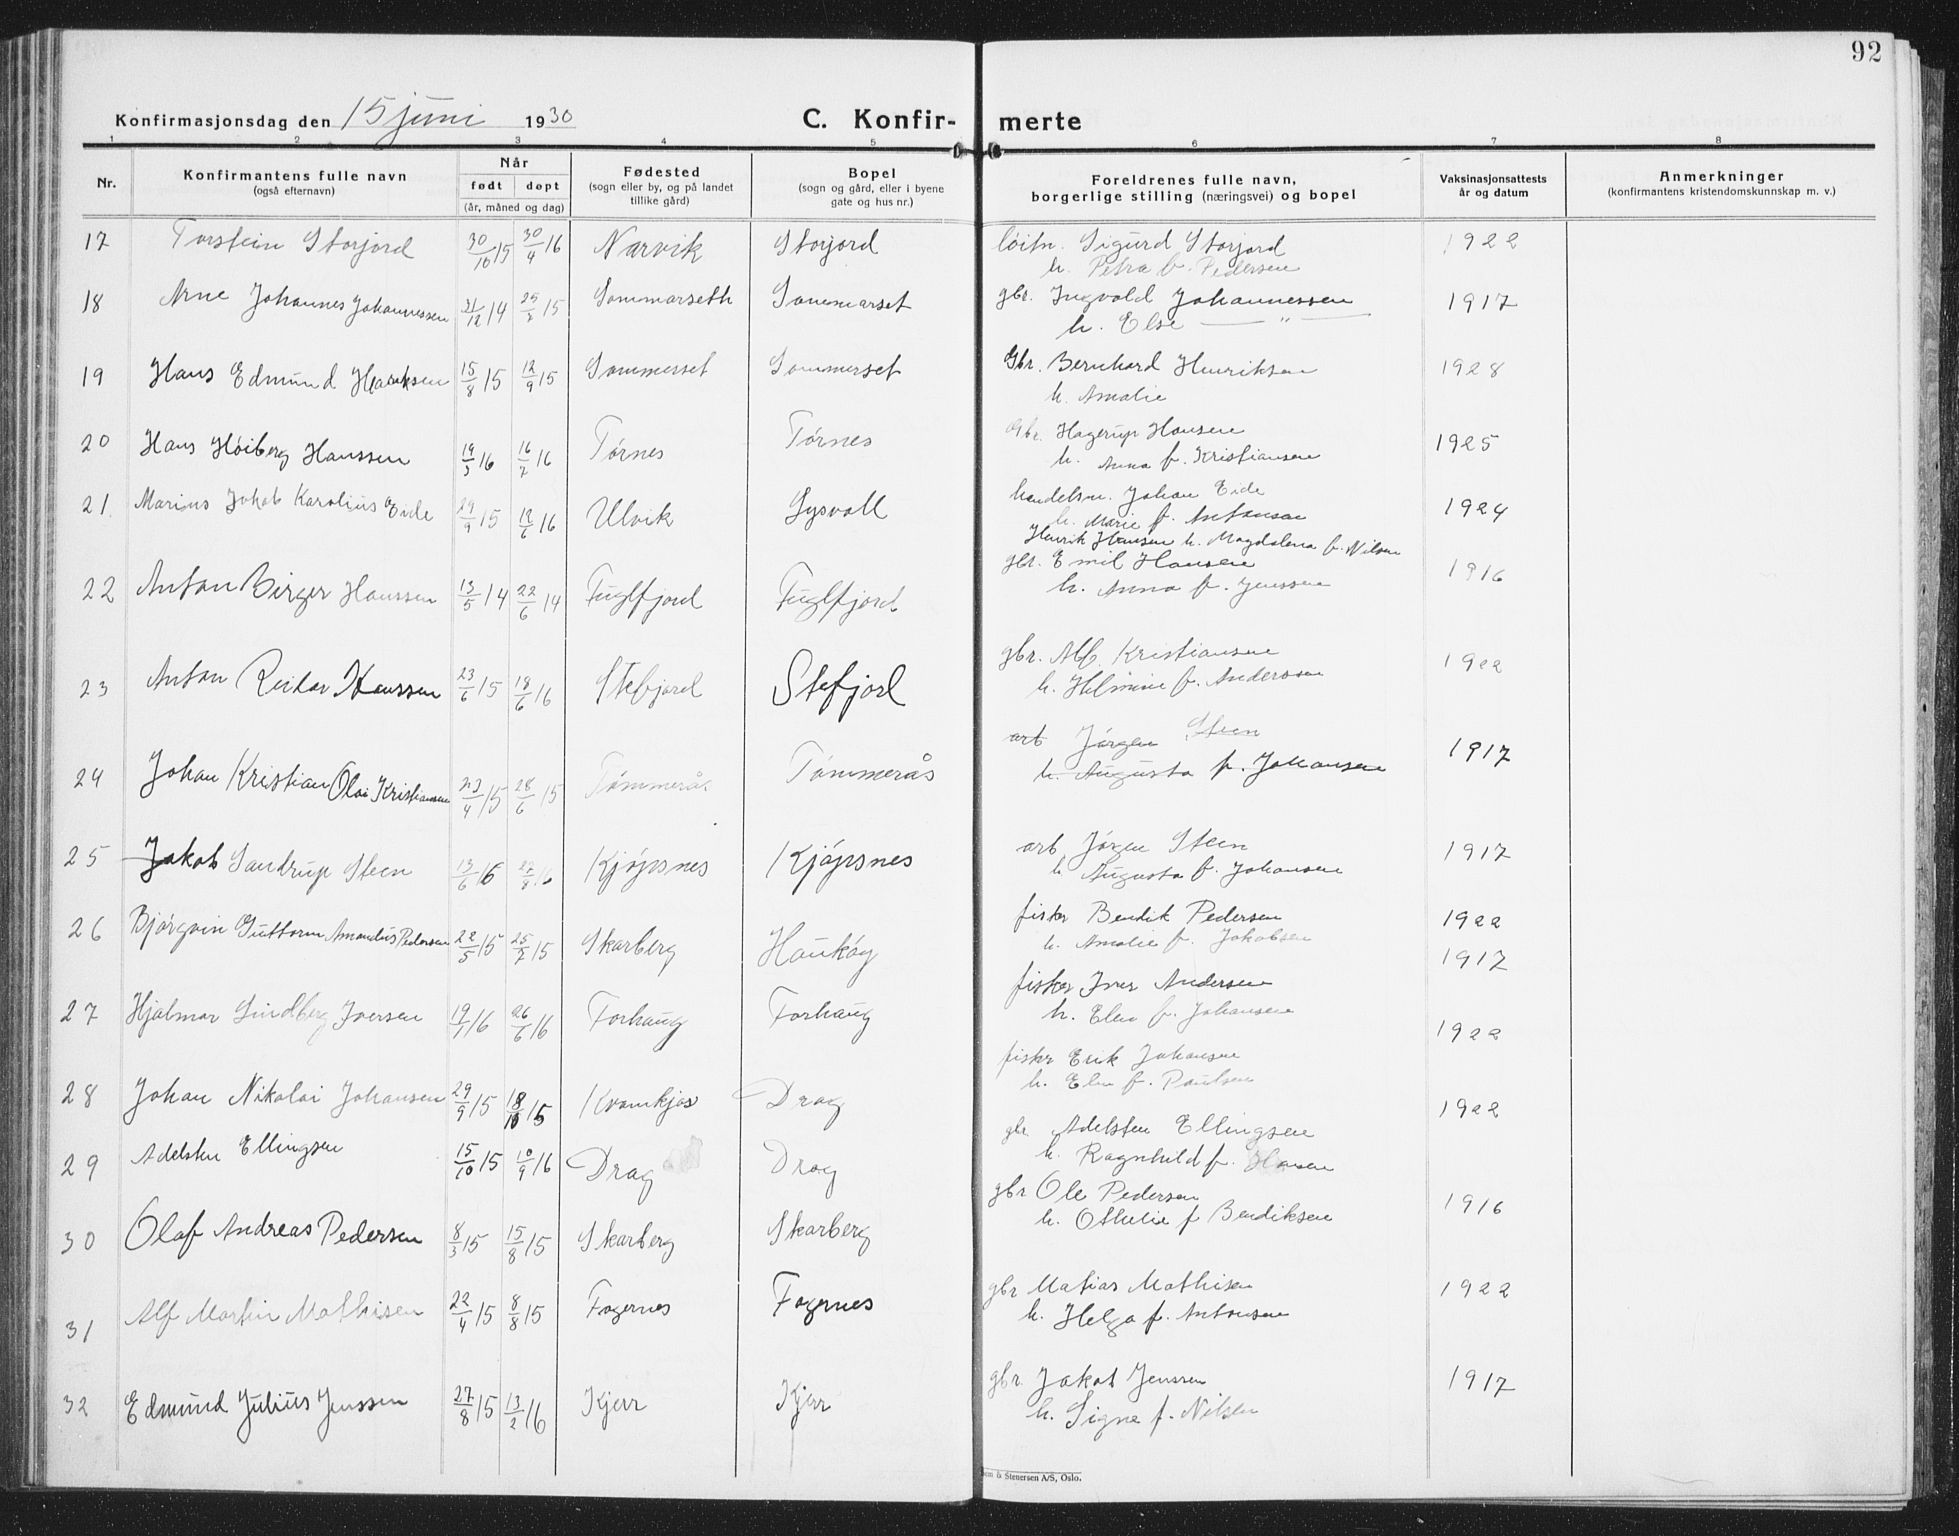 92
Konfirmasjonsdag den 15 juni 1930
C. Konfir- merte
1 2 3 4 5 6 7 8
Nr.
Konfirmantens fulle navn
(også efternavn)
Når
født døpt
(år, måned og dag)
Fødested
(sogn eller by, og på landet
tillike gård)
Bopel
(sogn og gård, eller i byene
gate og hus nr.)
Foreldrenes fulle navn,
borgerlige stilling (næringsvei) og bopel
Vaksinasjonsattests
år og datum
Anmerkninger
(konfirmantens kristendomskunnskap m. v.)
17 Torstein Storjord 30/10 15 30/4 16 Narvik Storjord løitn. Sigurd Storjord 1922
h. Petra f. Pedersen
18 Arne Johannes Johannessen 31/12 14 25/2 15 Sommarseth Sommarset gbr. Ingvald Johannessen 1917
h. Else — " —
19 Hans Edmund 15/8 15 12/9 15 Sommerset Sommerset Gbr. Bernhard Henriksen 1928
h. Amalie
20 Hans Høiberg Hanssen 19/3 16 16/7 16 Tørnes Tørnes Gbr. Hagerup Hansen 1925
h. Anna f. Kristiansen
21 Marius Jakob Karolius Eide 29/9 15 12/6 16 Ulvik Lysvoll handelsm. Johan Eide 1924
h. Marie f. Antonsen
Henrik Hansen h. Magdalena f. Nilsen
22 Anton Birger Hanssen 13/5 14 22/6 14 Fuglfjord Fuglfjord gbr. Emil Hansen 1916
h. Anna f. Jenssen
23 Anton Reidar Hanssen 23/6 15 18/6 16 Stefjord Stefjord gbr. Alf. Kristiansen 1922
h. Hilmine f. Andersen
24 Johan Kristian Olai Kristiansen 23/4 15 28/6 15 Tømmerås Tømmerås art Jørgen Steen 1917
h. Augusta f. Johansen
25 Jakob Sandrup Steen 13/6 16 27/8 16 Kjøpsnes Kjøpsnes arb Jørgen Steen 1917
h Augusta f. Johansen
26 Bjørgvin Guttorm Amandus Pedersen 22/5 15 25/7 15 Skarberg Haukøy fisker Bendik Pedersen 1922
h. Amalie f. Jakobsen
1917
27 Hjalmar Lindberg Iversen 19/1 16 26/6 16 Forhaug Forhaug fisker Iver Andersen
h. Elen f. Johansen
1922
fisker Erik Johansen
h. Elen f. Paulsen
28 Johan Nikolai Johansen 29/9 15 18/10 15 Kvamkjos Drag
1922
gbr Adelsten Ellingsen
29 Adelsten Ellingsen 15/10 15 10/9 16 Drag Drag h. Ragnhild f. Hansen
gbr Ole Pedersen 1916
30 Olaf Andreas Pedersen 8/3 15 15/8 15 Skarberg Skarberg h. Othelie f Bendiksen
gbr Matias Mathisen 1922
31 Alf Martin Mathisen 22/4 15 8/8 15 Fagernes Fagernes h. Helga f. Antonsen
gbr. Jakob Jenssen 1917
32 Edmund Julius Jenssen 27/8 15 13/2 16 Kjerr Kjerr h. Signe f. Nilsen
& Stenersen A/S, Oslo.